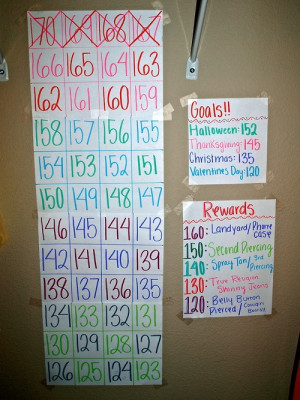 170 169 168 167
166 165 164 163
162 161 160 159
158 157 156 155
154 153 152 151
150 149 148 147
146 145 144 143
142 141 140 139
138 137 136 135
134 133 132 131
130 129 128 127
126 125 124 123
Goals!!
Halloween: 152
Thanksgiving: 145
Christmas: 135
Valentines Day: 120
Rewards
160: Landyard/Phone
case
150: Second Piercing
140: Spray Tan/3rd
Piercing
130: True Religion
Skinny Jeans
120: Belly Button
Pierced/